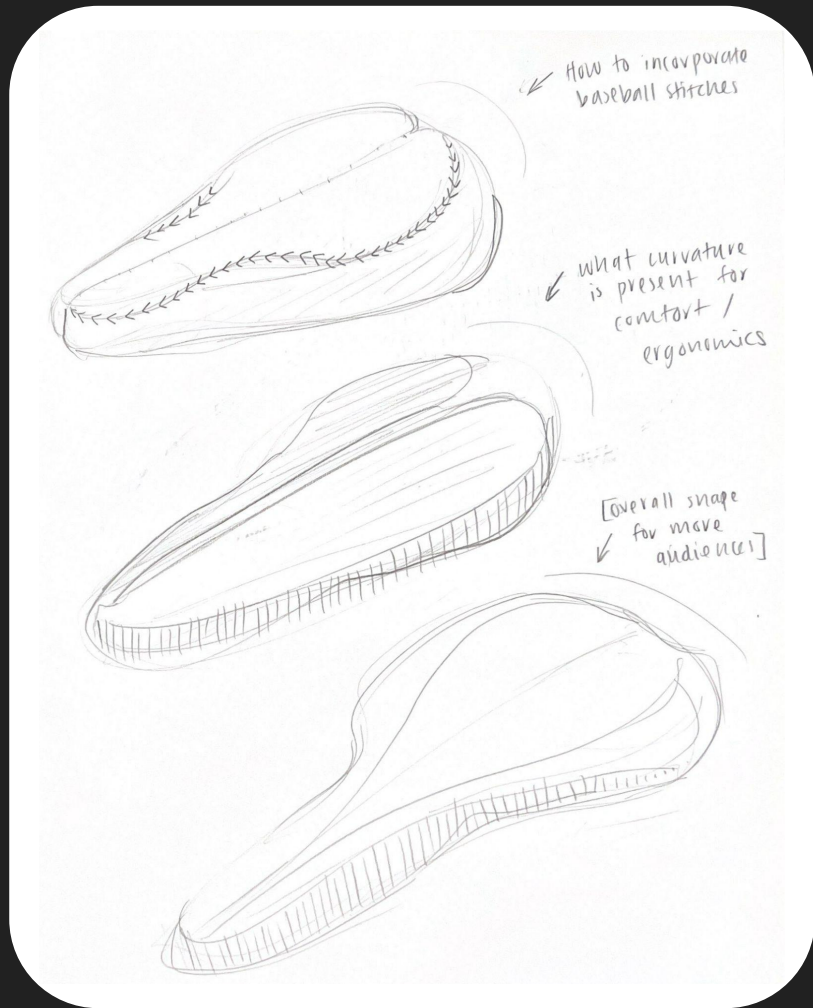 How to incorporate
baseball stitches
what curvature
is present for
comfort /
ergonomics
[overall shape
for more
audiences]